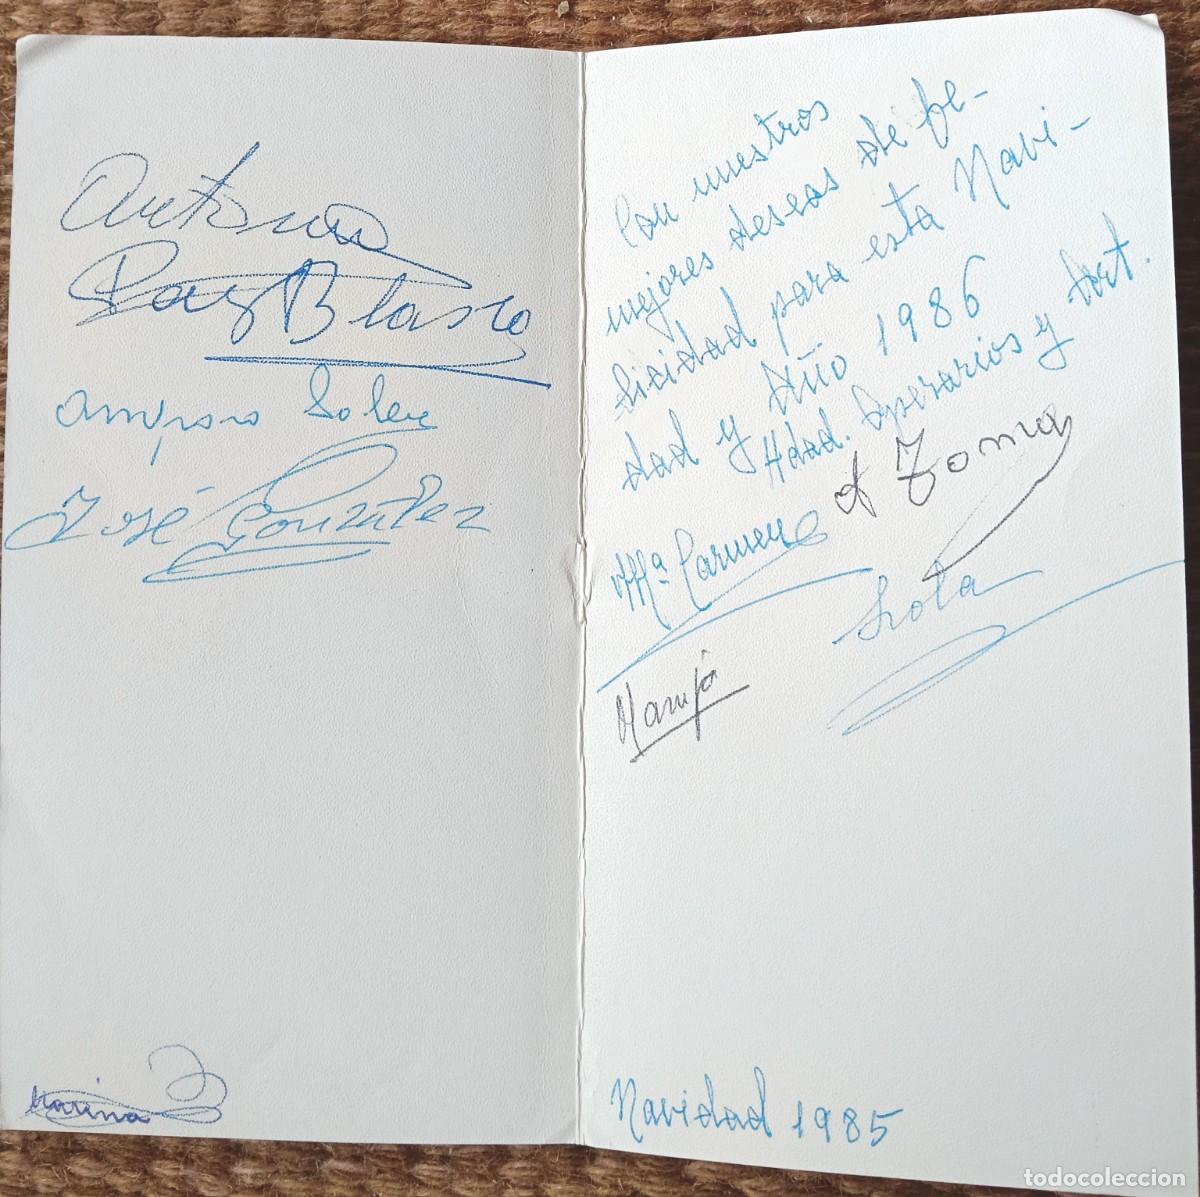 Antonio
Paz Blasco
Amparo Soler
José González
Marina
Con nuestros
mejores deseos de fe-
licidad para esta Navi-
dad y Año 1986
Hdad. Operarios y Cort.
A Toma
Mª Carmen
Lola
Maruja
Navidad 1985
todocoleccion